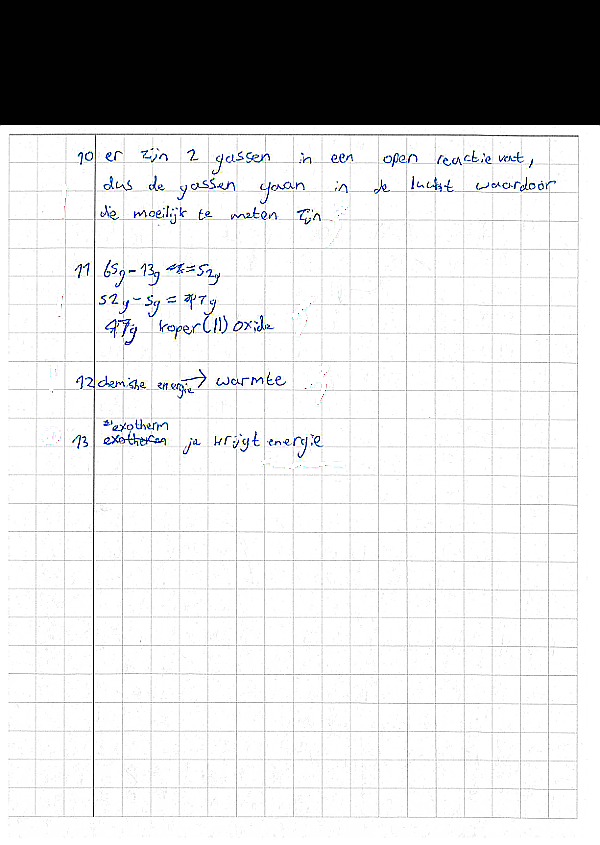 10 er zijn 2 gassen in een open reactie vat,
dus de gassen gaan in de lucht waardoor
die moeilijk te meten zijn
11 65g - 13g = 52g
52g - 5g = 47g
47g koper(II) oxide
12 chemishe energie → warmte
exotherm
13 ja krijgt energie